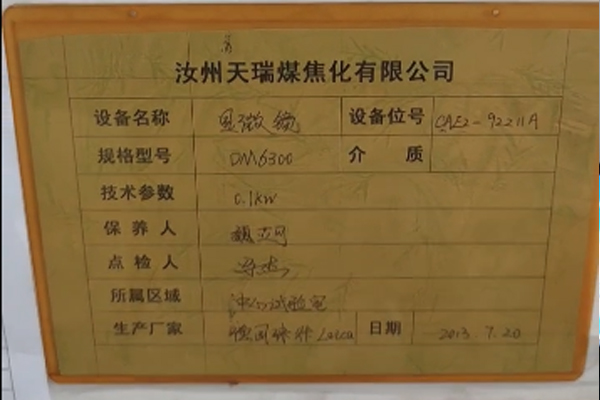 汝州天瑞煤焦化有限公司
设备名称 显微镜 设备位号 CAE2-92211A
规格型号 DM6300 介质
技术参数 0.1kw
保养人
点检人
所属区域 中心试验室
生产厂家 德国 Leica 日期 2013.7.20